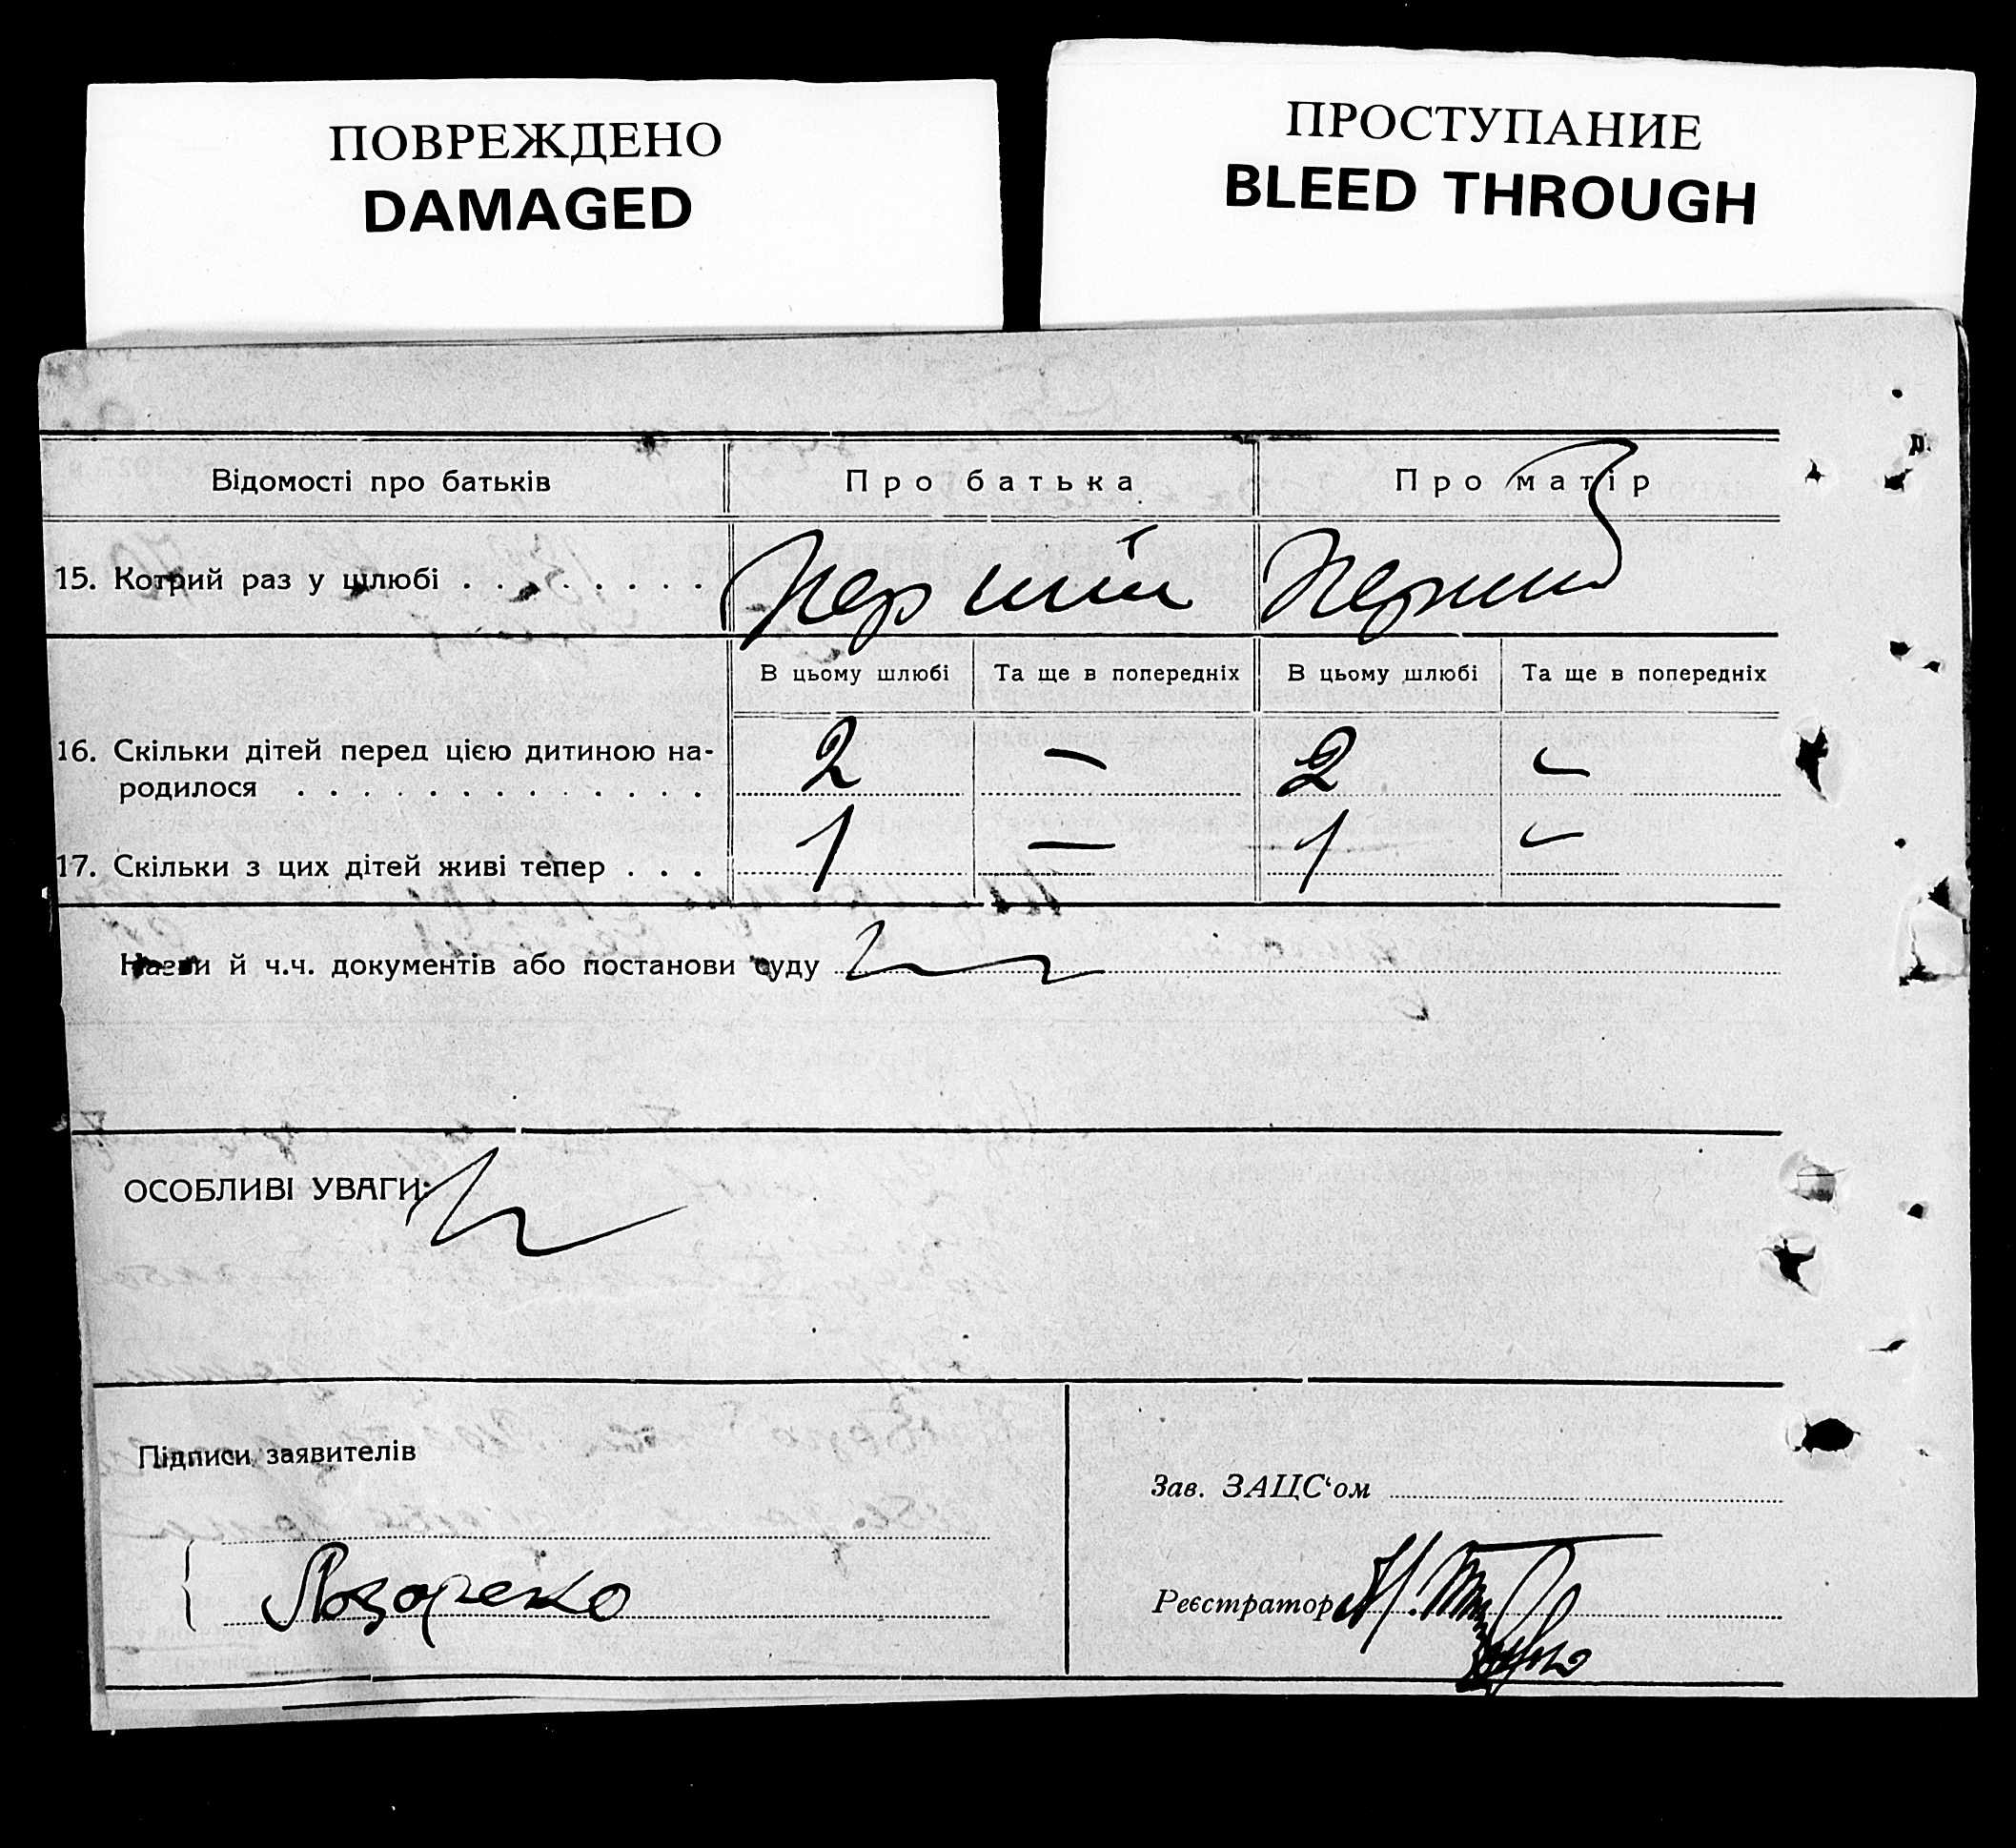 ПОВРЕЖДЕНО
DAMAGED
ПРОСТУПАНИЕ
BLEED THROUGH
р.
Відомості про батьків Про батька Про матір
15. Котрий раз у шлюбі . . . . . . . . перший перший
В цьому шлюбі Та ще в попередніх В цьому шлюбі Та ще в попередніх
16. Скільки дітей перед цією дитиною на-
родилося . . . . . . . . . . . . . 2 — 2 —
17. Скільки з цих дітей живі тепер . . . 1 — 1 —
Назви й ч.ч. документів або постанови суду
ОСОБЛИВІ УВАГИ:
Підписи заявителів
Зав. ЗАЦС‘ом
Лазаренко
Реєстратор